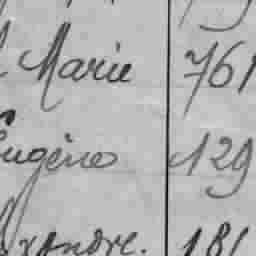 Marie 761
Eugène 129
exandre. 181